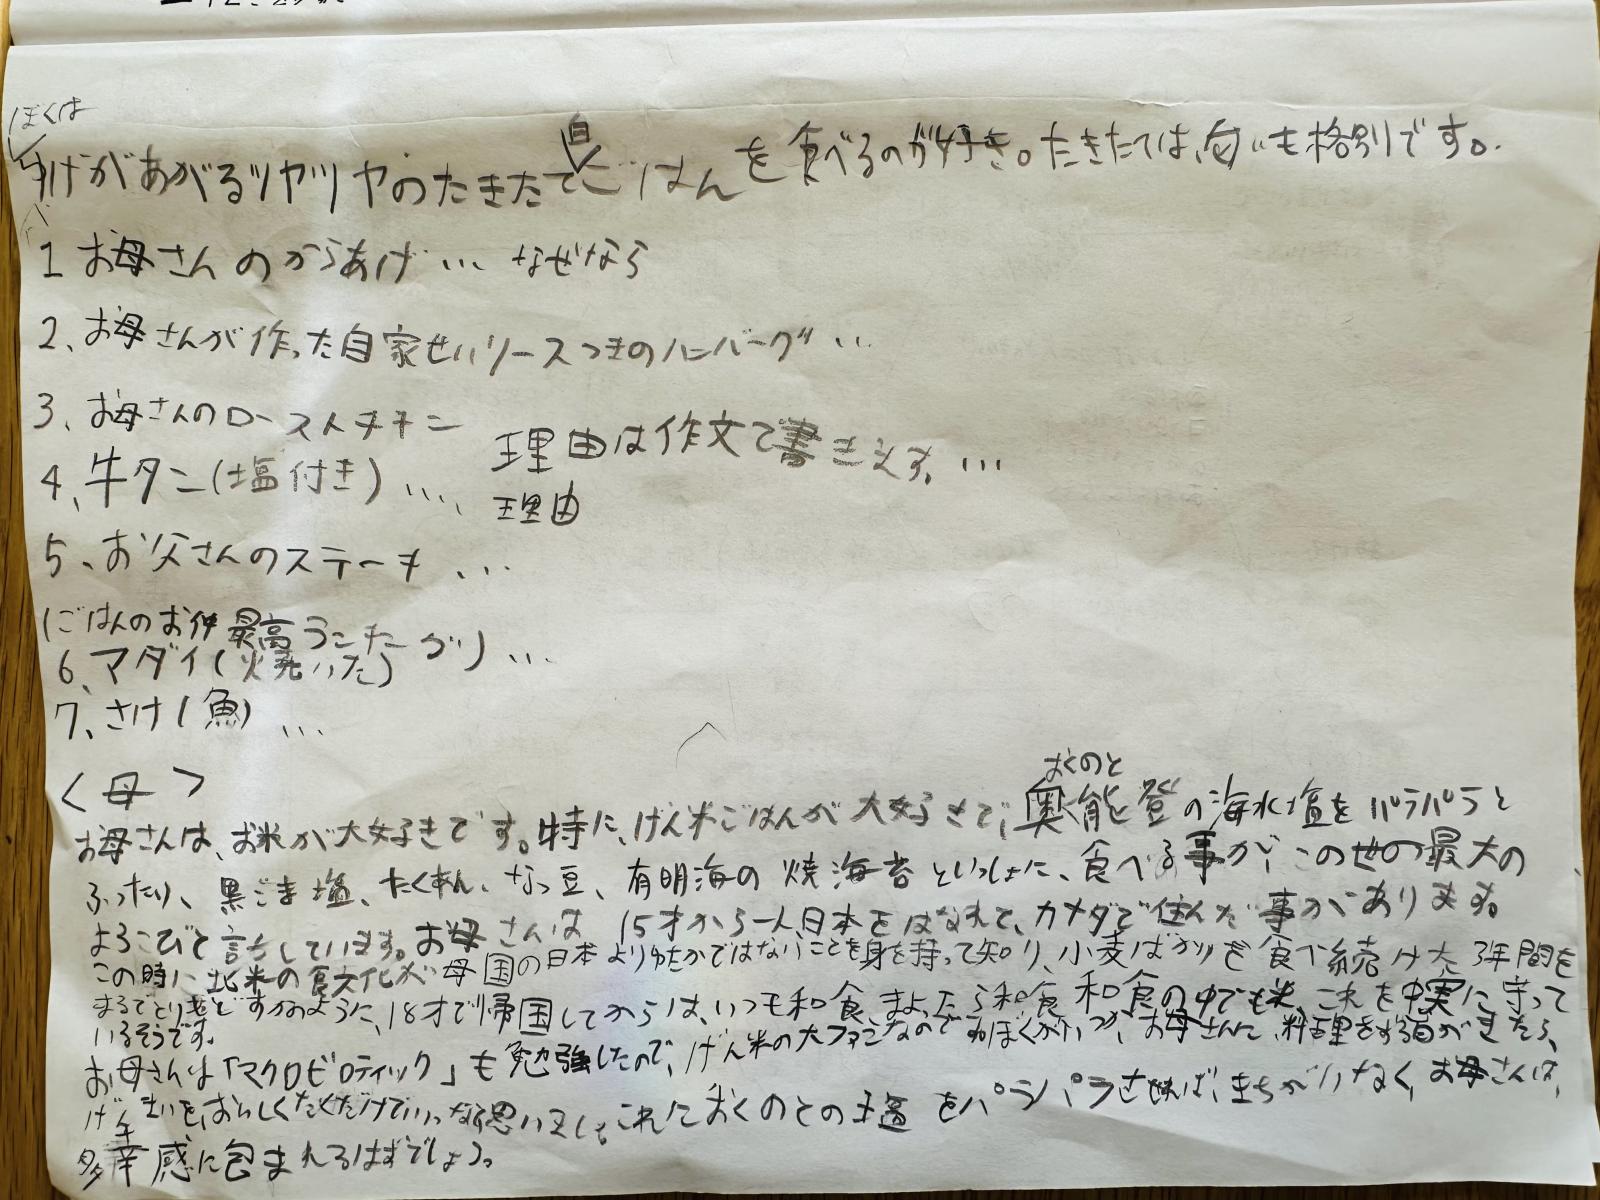 ぼくは
ゆげがあがるツヤツヤのたきたて白ごはんを食べるのが好き。たきたては、匂いも格別です。
1 お母さんのからあげ... なぜなら
2、お母さんが作った自家せいソースつきのハンバーグ...
3、お母さんのローストチキン 理由は作文で書きます。...
4、牛タン(塩付き)... 理由
5、お父さんのステーキ...
ごはんのお伴 最高
6、マダイ(焼いた) ...
7、さけ(魚)...
〈母〉
おくのと
お母さんは、お米が大好きです。特に、げん米ごはんが大好きで、奥能登の海水塩をパラパラと
ふったり、黒ごま塩、たくあん、なっ豆、有明海の焼海苔といっしょに、食べる事が、この世の最大の
よろこびと話しています。お母さんは 15才から一人日本をはなれて、カナダで住んだ事があります。
この時に北米の食文化が母国の日本よりゆたかではないことを身を持って知り、小麦ばかりを食べ続けた3年間を
まるでとりもどすかのように、18才で帰国してからは、いつも和食、まったら和食 和食の中でも米、これを忠実に守って
いるそうです。
お母さんは「マクロビロティック」も勉強したので、げん米の大ファンなので ぼくがいつか、お母さんに料理を する日がきたら、
げん まいをおいしくたくだけでいいなと思いました。これにおくのとの塩をパラパラさせれば、まちがいなく、お母さんは、
多幸感に包まれるはずでしょう。